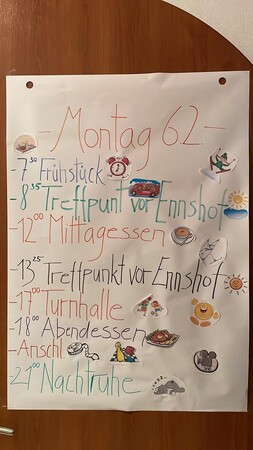 - Montag 6.2. -
- 7³⁰ Frühstück
- 8³⁵ Treffpunt vor Ennshof
- 12⁰⁰ Mittagessen
- 13²⁵ Treffpunkt vor Ennshof
- 17⁰⁰ Turnhalle
- 18⁰⁰ Abendessen
- Anschl.
- 21⁰⁰ Nachtruhe